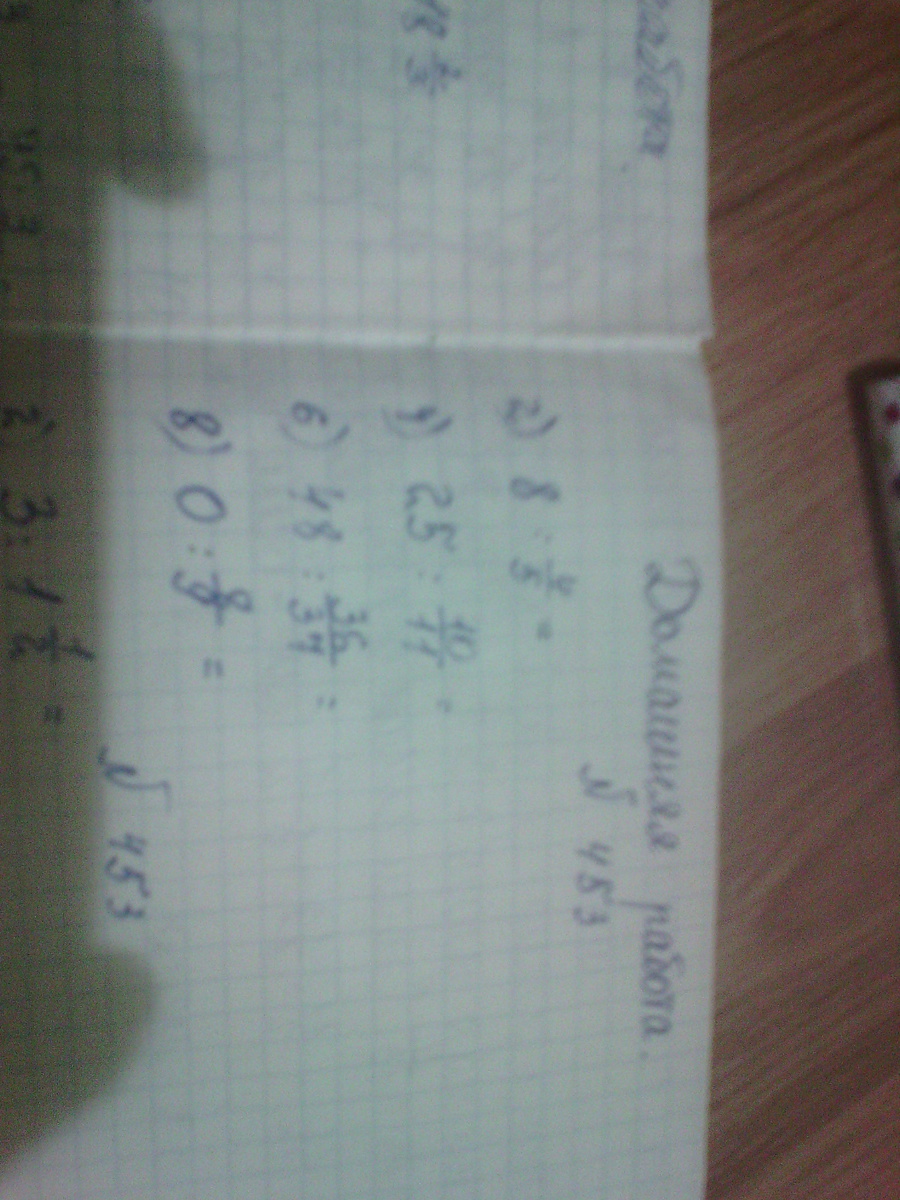 Домашняя работа.
№ 453
2) 8 : 4/5 =
4) 25 : 10/11 =
6) 48 : 36/37 =
8) 0 : 8/9 =
№ 453
2) 3 : 1 1/2 =